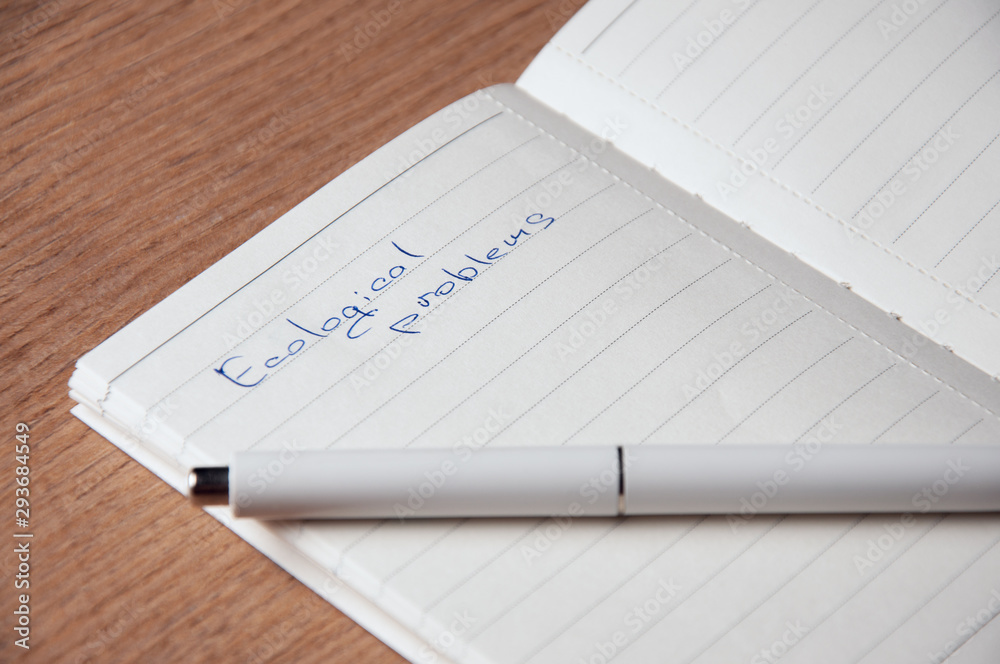 Ecological
problems
Adobe Stock | #293684549